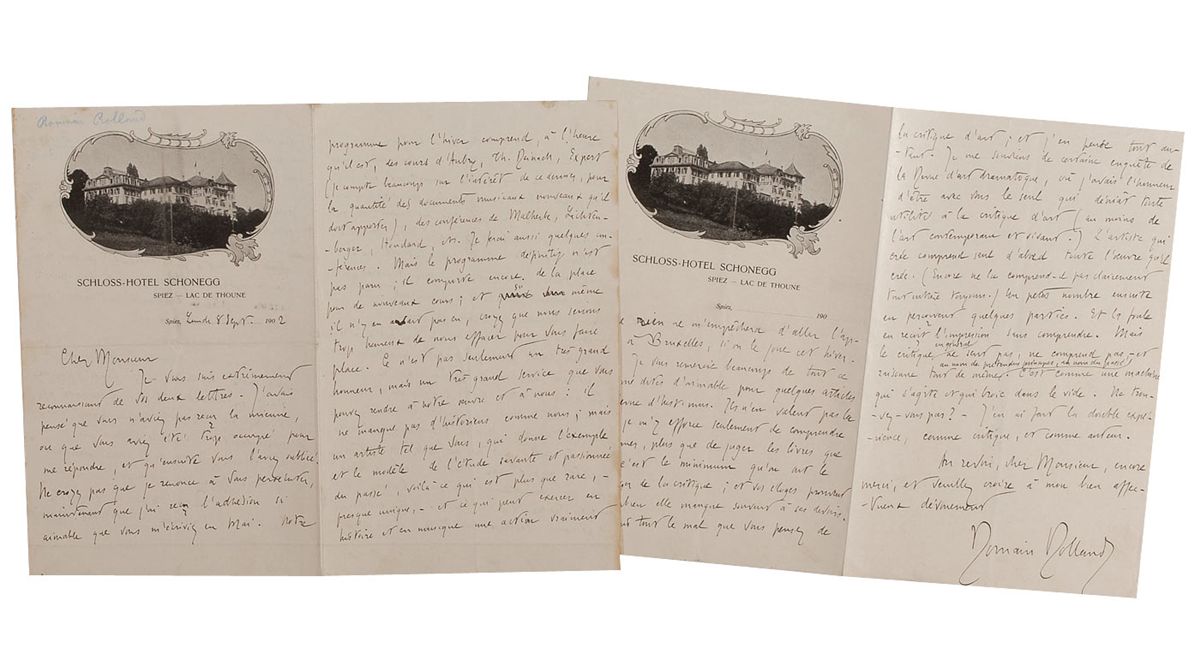 Romain Rolland
SCHLOSS-HOTEL SCHONEGG
SPIEZ — LAC DE THOUNE
Spiez, Lundi 8 Sept. 1902
Cher Monsieur
Je vous suis extrêmement
reconnaissant de vos deux lettres. J'avais
pensé que vous n'aviez pas reçu la mienne,
ou que vous aviez été trop occupé pour
me répondre, et qu'ensuite vous l'aviez oublié.
Ne croyez pas que je renonce à vous persécuter,
maintenant que j'ai reçu l'adhésion si
aimable que vous m'écriviez en Mai. Notre
programme pour l'hiver comprend, à l'heure
qu'il est, des cours d'Aubry, Th. Reinach, Expert
(je compte beaucoup sur l'intérêt de ce dernier, pour
la quantité des documents musicaux nouveaux qu'il
doit apporter), des conférences de Malherbe, Lichten-
berger, Houdard, etc. Je ferai aussi quelques con-
férences. Mais le programme définitif n'est
pas paru; il comporte encore de la place
pour de nouveaux cours; et même
il n'y en aurait pas eu, croyez que nous serions
trop heureux de nous effacer pour vous faire
place. Ce n'est pas seulement un très grand
honneur, mais un très grand service que vous
pouvez rendre à notre œuvre et à nous: il
ne manque pas d'historiens comme nous; mais
un artiste tel que vous, qui donne l'exemple
et le modèle de l'étude savante et passionnée
du passé, voilà ce qui est plus que rare, —
presque unique, — et ce qui peut exercer en
histoire et en musique une action vraiment
SCHLOSS-HOTEL SCHONEGG
SPIEZ — LAC DE THOUNE
Spiez, 190
rien ne m'empêchera d'aller l'ap-
à Bruxelles, si on le joue cet hiver.
Je vous remercie beaucoup de tout ce
me dites d'aimable pour quelques articles
d'histoire. Ils n'en valent pas la
je m'y efforce seulement de comprendre
plus que de juger les livres que
c'est le minimum qu'on ait le
de la critique; et vos éloges prouvent
bien elle manque souvent à ses devoirs.
tout le mal que vous pensez de
la critique d'art; et j'en pense tout au-
tant. Je me souviens de certaine enquête de
la Revue d'art dramatique, où j'avais l'honneur
d'être avec vous le seul qui déniât toute
utilité à la critique d'art (au moins de
l'art contemporain et vivant.) L'artiste qui
crée comprend seul d'abord toute l'œuvre qu'il
crée. (Encore ne la comprend-il pas clairement
tout entière toujours.) Un petit nombre ensuite
en perçoivent quelques parties. Et la foule
en reçoit l'impression sans comprendre. Mais
le critique en général ne sent pas, ne comprend pas — et
au nom de prétendus principes, au nom du passé!
raisonne tout de même. C'est comme une machine
qui s'agite et qui broie dans le vide. Ne trou-
vez-vous pas? — J'en ai fait la double expé-
rience, comme critique, et comme auteur.
Au revoir, cher Monsieur, encore
merci, et veuillez croire à mon bien affec-
tueux dévouement
Romain Rolland